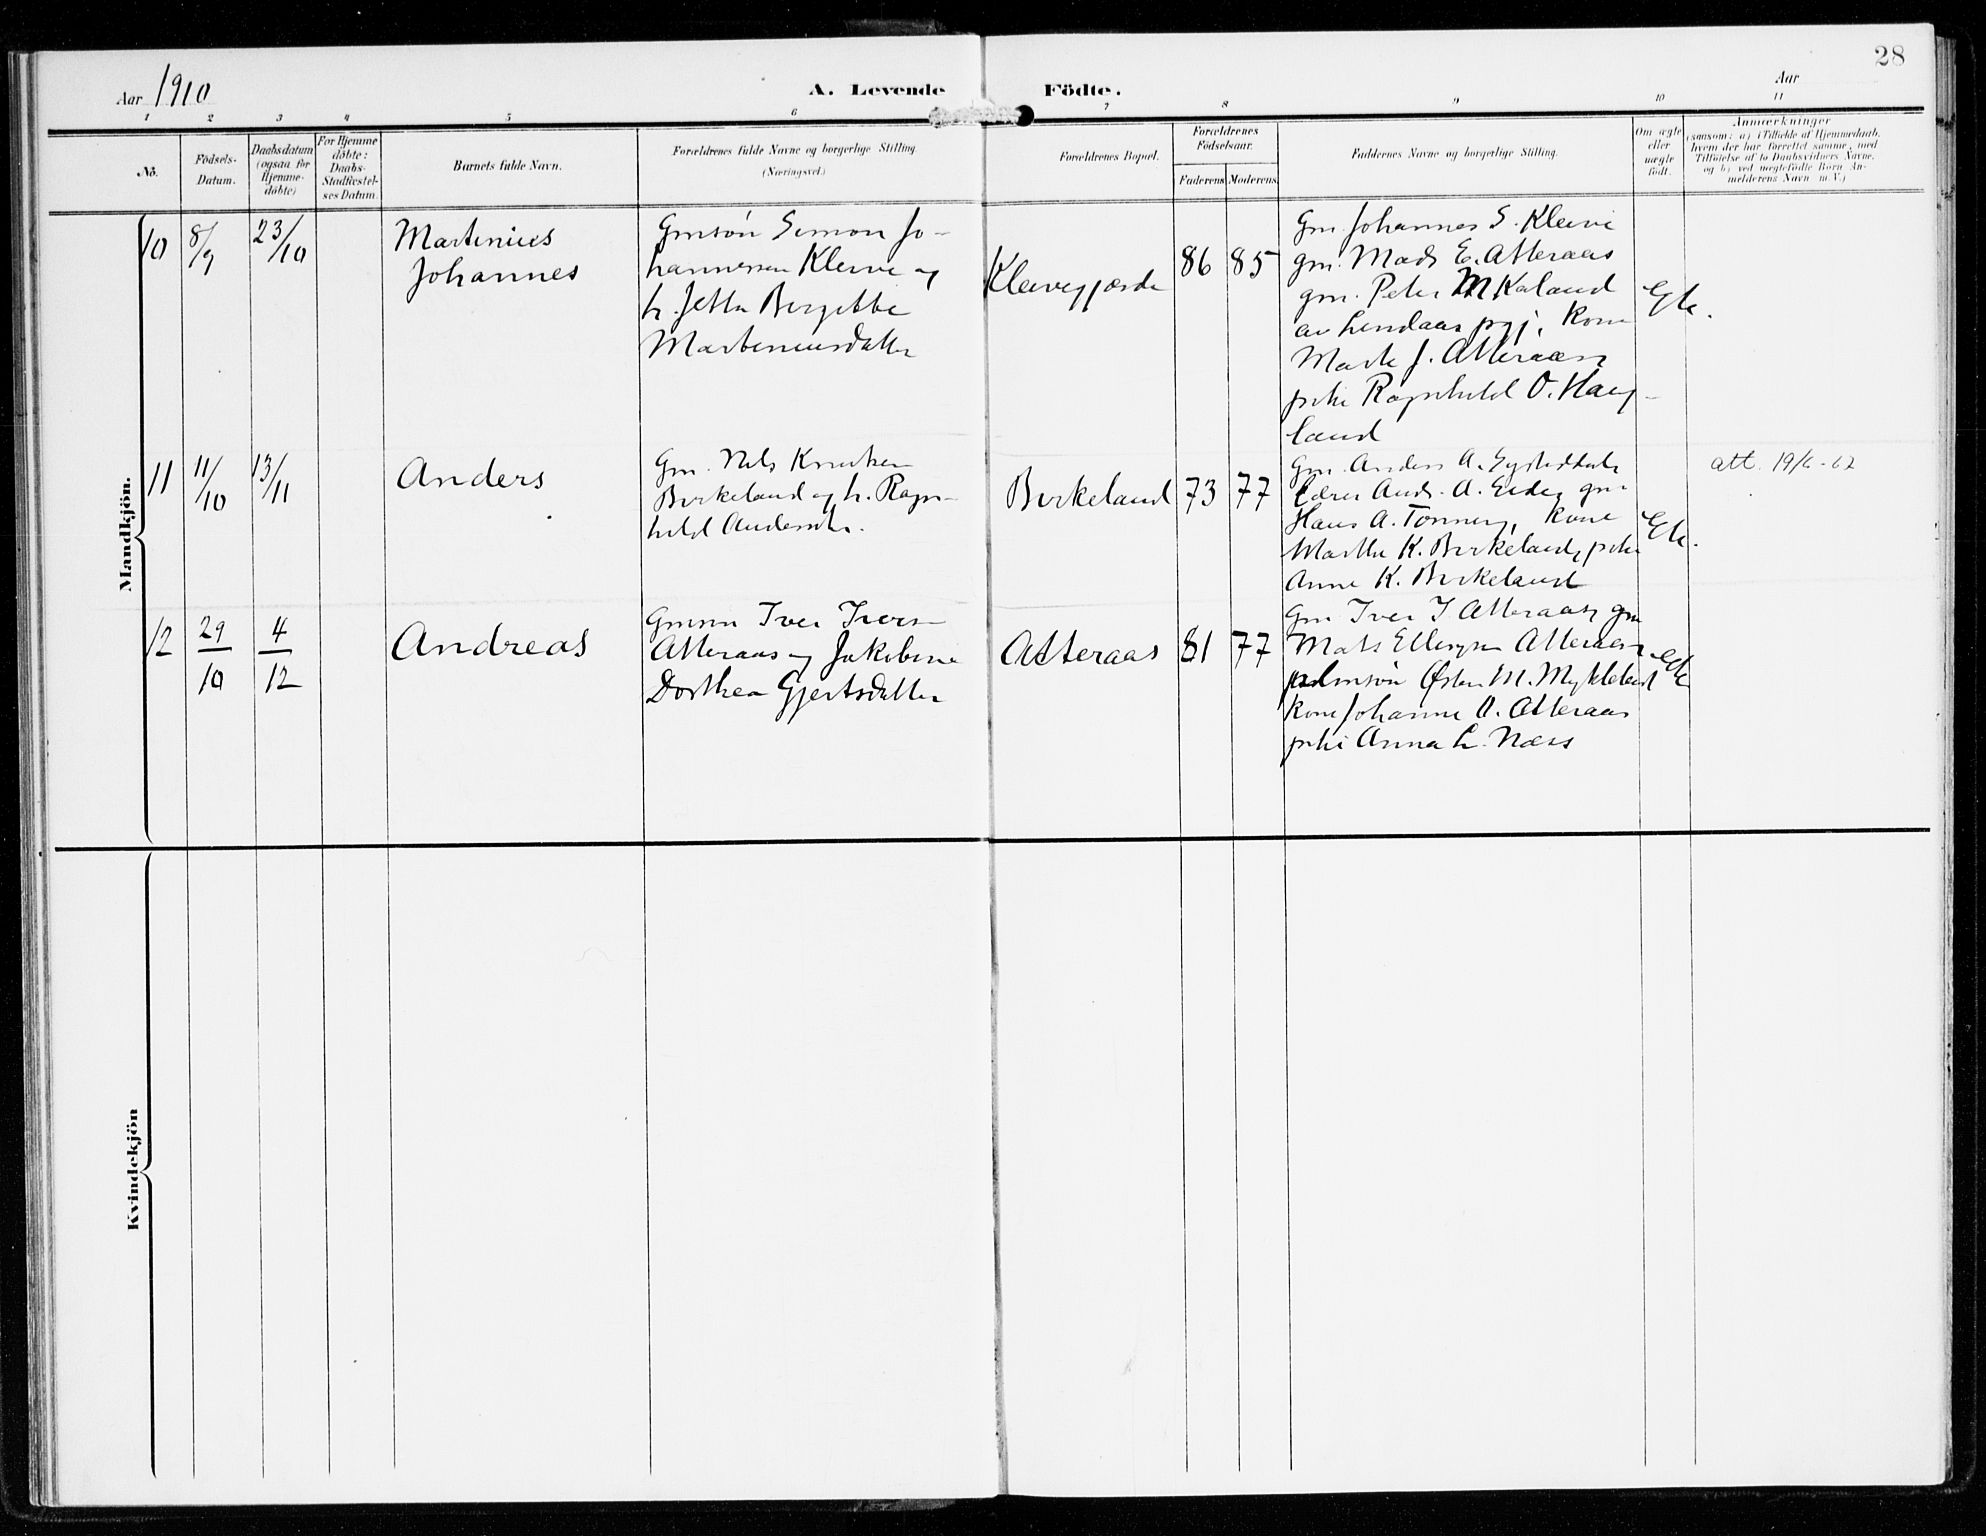 28
Aar 1910
A. Levende Födte.
Aar
1 2 3 4 5 6 7 8 9 10 11
No.
Födsels-
Datum.
Daabsdatum
(ogsaa for
Hjemme-
döbte)
For Hjemme
döbte:
Daabs-
Stadfæstel-
ses Datum.
Barnets fulde Navn.
Forældrenes fulde Navne og borgerlige Stilling.
(Næringsvei.)
Forældrenes Bopæl.
Forældrenes
Födselsaar.
Faderens Moderens
Faddernes Navne og borgerlige Stilling.
Om ægte
eller
uægte
födt.
Anmærkninger
(saasom: a) i Tilfælde af Hjemmedaab,
hvem der har forrettet samme, med
Tilföielse af to Daabsvidners Navne,
og b) ved uægtefödte Børn An-
melderens Navn m. V.)
Mandkjön.
10
8/9
23/10
Martinius
Johannes
Gmsøn Simon Jo-
hannessen Kleive og
h. Jetta Bergitte
Martiniusdatter
Kleivegjærde
86 85
Gm. Johannes S. Kleive
gm. Mads E. Atteraas
gm. Peter M Kaland
av Lindaas pgj, kone
J. Atteraas
pike Ragnhild O. Haug-
land
Egte.
11
11/10
13/11
Anders
Gm. Nels Knutsen
Birkeland og h. Ragn-
hild Andersdtr.
Birkeland
73 77
Gm. Anders A.
Lærer Ands. A. gm.
Hans A. kone
Marthe K. Birkeland, pike
Anne K. Birkeland
Egte.
att. 19/6-62
12
29/10
4/12
Andreas
Gmsøn Iver Iversen
Atteraas og Jakobine
Dorthea Gjertsdatter
Atteraas
81 77
Gm Iver I Atteraas, gm
Mats Ellingsen Atteraas
Østen M. Mykletust
kone Johanne A. Atteraas
pike Anna L. Næss
Egte
Kvindekjön